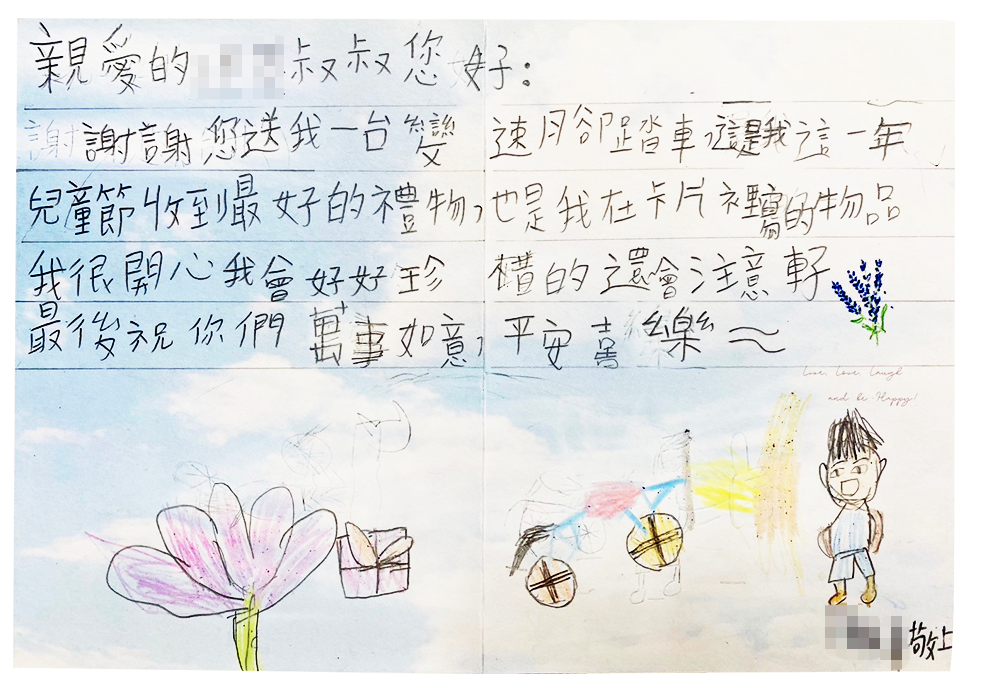 親愛的 叔叔您好：
謝謝您送我一台變速月卻踏車，這是我這一年
兒童節收到最好的禮物，也是我在卡片裡寫的物品
我很開心我會好好珍惜的還會注意
最後祝你們萬事如意，平安喜樂～
Live, Love, Laugh
and be Happy!
敬上